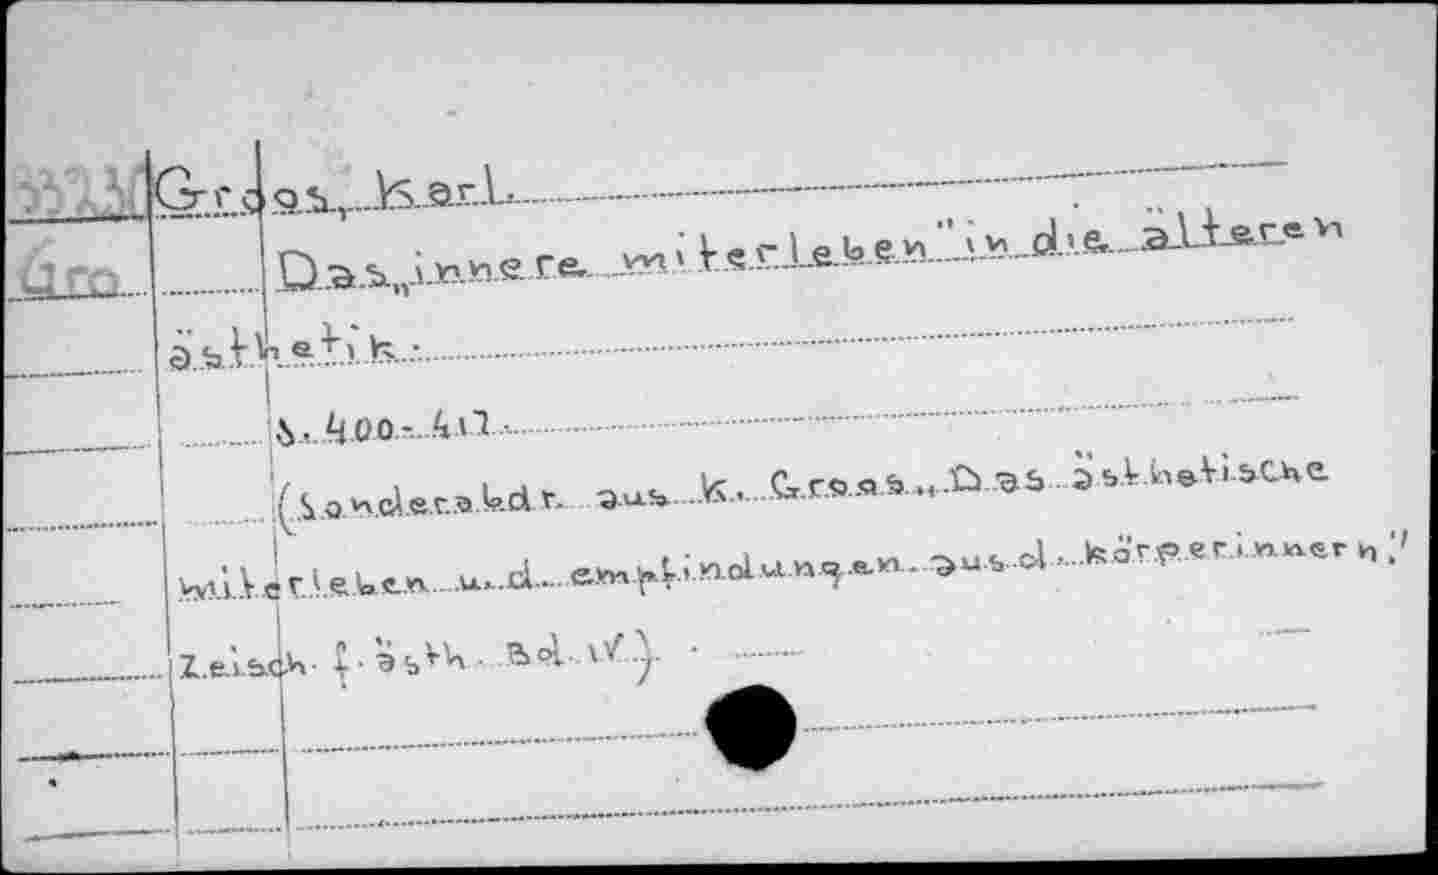 Groos, Karl.
Gro
Das „innere miterleben" in die älteren
ästhetik.
S. 400-417.
(Sonderabdr. aus K. Groos „Das ästhetische
miterleben u. d. empfindungen aus d. körperinnern"
Zeisch. f. ästh. Bd. IV).